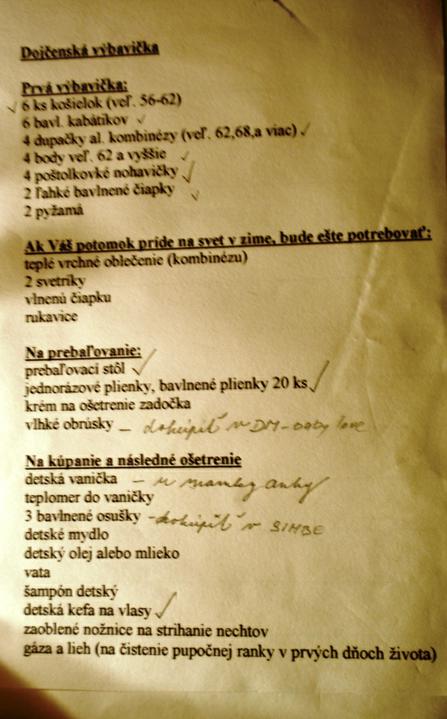 Dojčenská výbavička
Prvá výbavička:
6 ks košielok (veľ. 56-62)
6 bavl. kabátikov
4 dupačky al. kombinézy (veľ. 62,68,a viac)
4 body veľ. 62 a vyššie
4 poštolkovké nohavičky
2 ľahké bavlnené čiapky
2 pyžamá
Ak Váš potomok príde na svet v zime, bude ešte potrebovať:
teplé vrchné oblečenie (kombinézu)
2 svetríky
vlnenú čiapku
rukavice
Na prebaľovanie:
prebaľovací stôl
jednorázové plienky, bavlnené plienky 20 ks
krém na ošetrenie zadočka
vlhké obrúsky – dokúpiť v DM - baby love
Na kúpanie a následné ošetrenie
detská vanička –
teplomer do vaničky
3 bavlnené osušky - dokúpiť v SIMBE
detské mydlo
detský olej alebo mlieko
vata
šampón detský
detská kefa na vlasy
zaoblené nožnice na strihanie nechtov
gáza a lieh (na čistenie pupočnej ranky v prvých dňoch života)